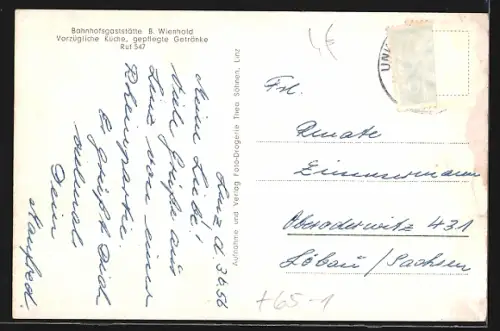 Bahnhofsgaststätte B. Wienhold
Vorzügliche Küche, gepflegte Getränke
Ruf 547
Linz d. 3.6.56
Meine Liebe!
Viele Grüße aus
Linz von einer
Rheinpartie.
Es grüßt Dich
vielmals
Dein
Manfred.
Aufnahme und Verlag Foto-Drogerie Theo Söhnen, Linz
Frl.
Renate
Zimmermann
Oberoderwitz 431
Löbau / Sachsen
+65-1